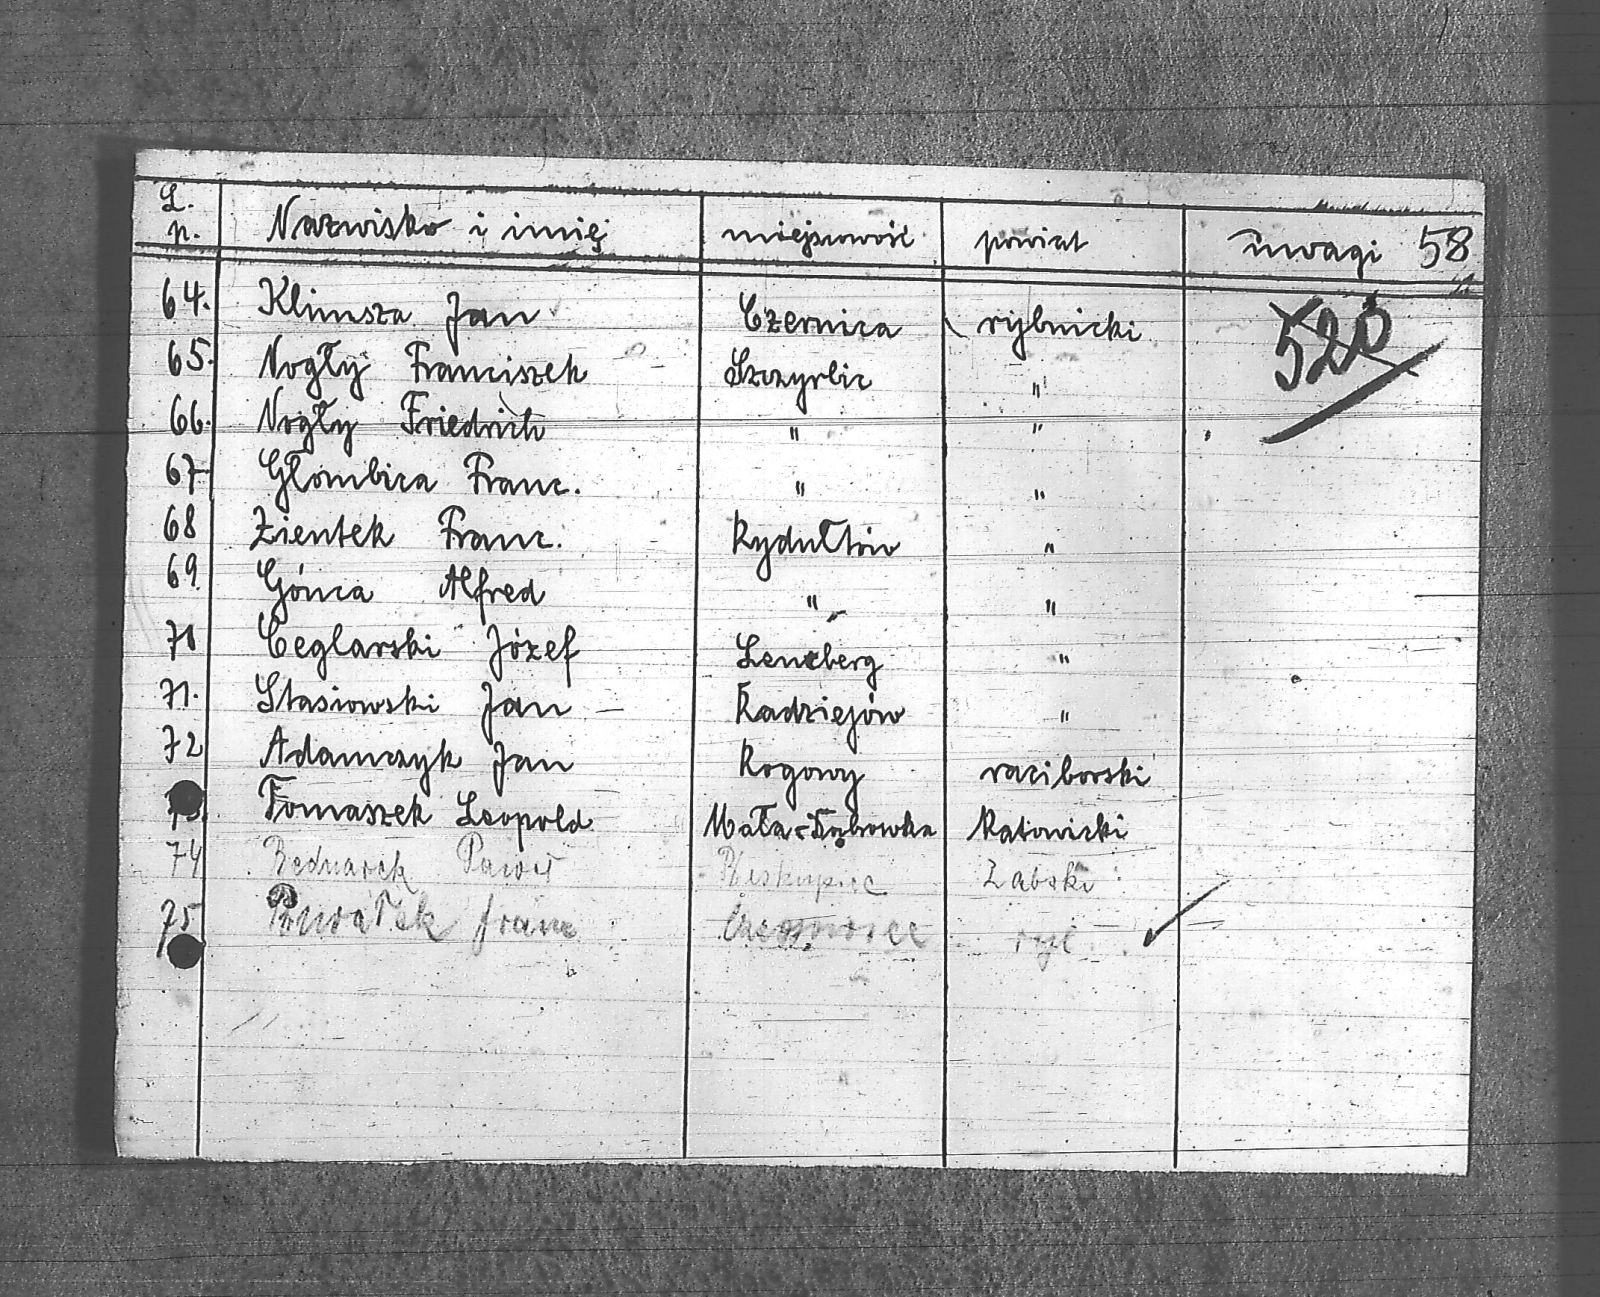 L. p. Nazwisko i imię miejscowość powiat uwagi 58
64. Klimsza Jan Czernica rybnicki 520
65. Nogły Franciszek Szczyrbic "
66. Nogły Friedrich " "
67 Glombica Franc. " "
68 Zientek Franc. Rydułtów "
69. Gónca Alfred " "
70 Ceglarski Józef Lenzberg "
71. Stasiowski Jan Radziejów "
72 Adamczyk Jan Rogowy raciborski
73. Tomaszek Leopold Mała-Dąbrowka Katowicki
74 Bednarek Paweł Biskupice Zabski
75 Franc ryb